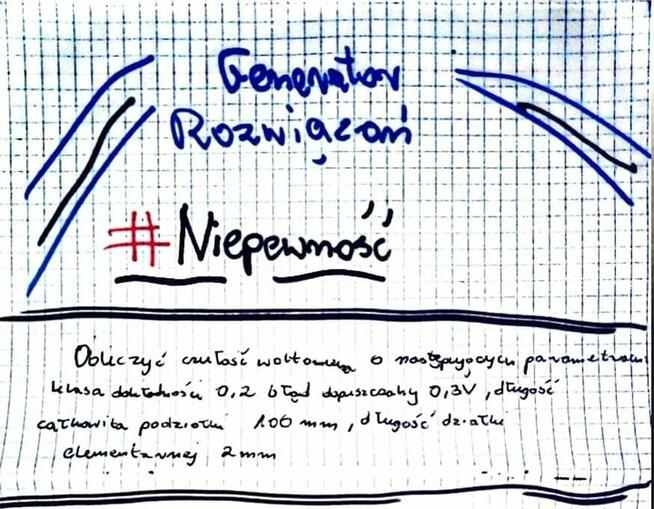 Generator
Rozwiązań
#Niepewność
Obliczyć czułość woltomierza o następujących parametrach
klasa dokładności 0,2 błąd dopuszczalny 0,3V, długość
całkowita podziałki 100 mm, długość działki
elementarnej 2mm